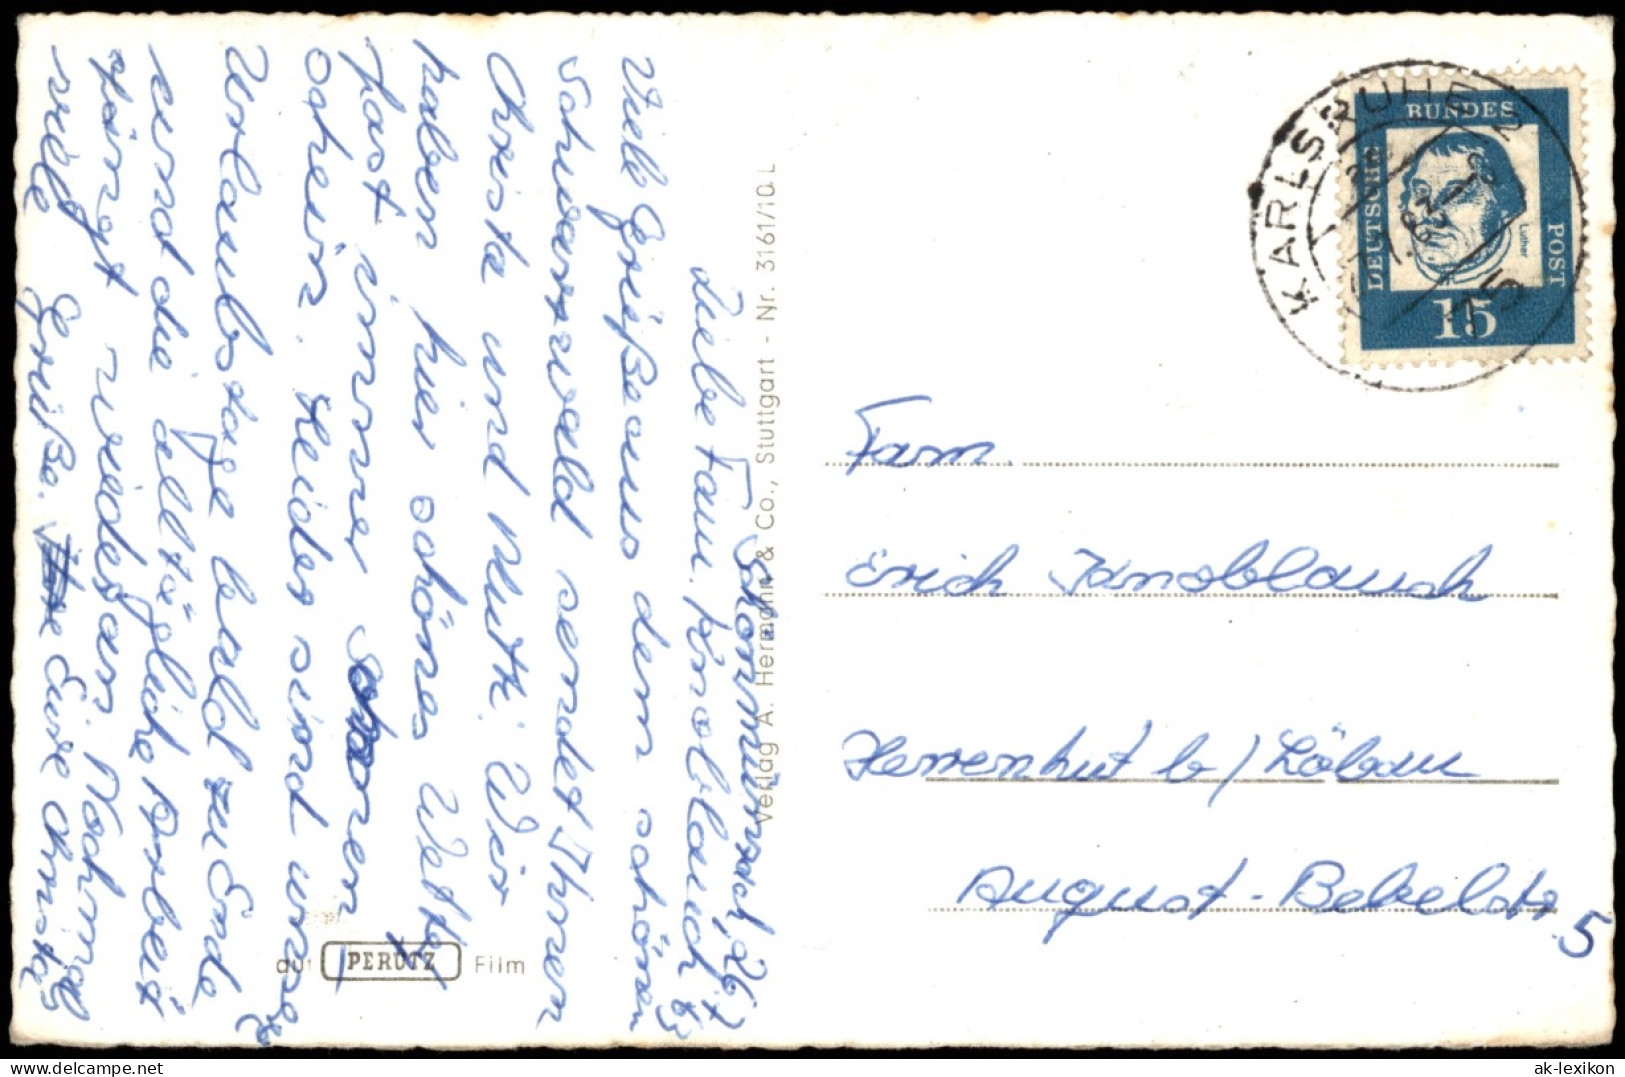 Schönmünzach, 26.7.
63
Liebe Fam. Knoblauch
Viele Grüße aus dem schönen
Schwarzwald sendet Ihnen
Christa und Ruth. Wir
haben hier schönes Wetter
fast immer
schein. Leider sind unse
Urlaubstage bald zu Ende
und die alltägliche Arbeit
fängt wieder an. Nochmal
viele Grüße. Eure Christa
Verlag A. Hermann & Co., Stuttgart - Nr. 3161/10 L
auf PERUTZ Film
KARLSRUHE 2
75
DEUTSCHE BUNDES POST
Luther
15
Fam.
Erich Knoblauch
Herrenhut b/Löbau
August-Bebelstr.
5
ak-lexikon